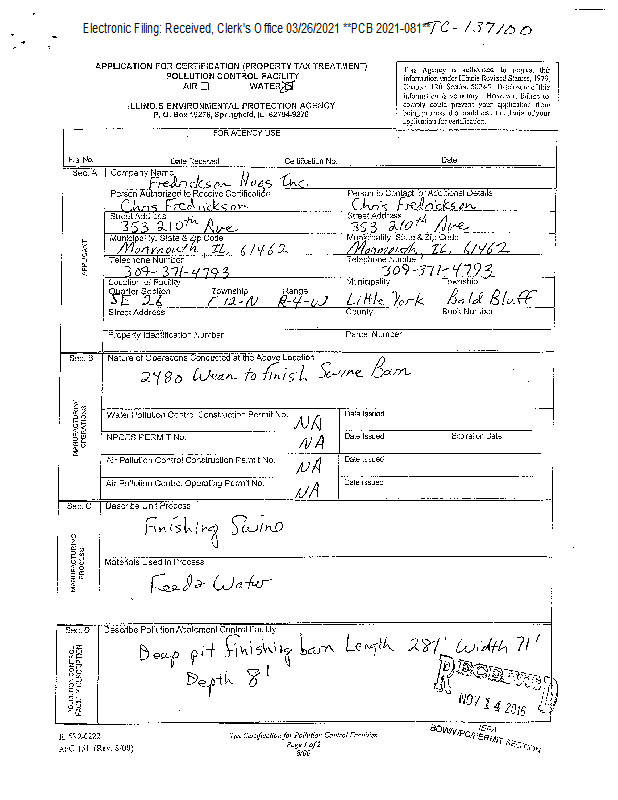 Electronic Filing: Received, Clerk's Office 03/26/2021 **PCB 2021-081**
TC-137100
APPLICATION FOR CERTIFICATION (PROPERTY TAX TREATMENT)
POLLUTION CONTROL FACILITY
AIR WATER
ILLINOIS ENVIRONMENTAL PROTECTION AGENCY
P. O. Box 19276, Springfield, IL 62794-9276
This Agency is authorized to request this
information under Illinois Revised Statutes, 1979,
Disclosure of this
information is voluntary. However, failure to
comply could prevent your application from
being processed
application for certification.
FOR AGENCY USE
File No. Date Received Certification No. Date
Sec. A
APPLICANT
Company Name
Fredrickson Hogs Inc.
Person Authorized to Receive Certification Person to Contact for Additional Details
Chris Fredrickson Chris Fredrickson
Street Address Street Address
353 210th Ave 353 210th Ave
Municipality, State & Zip Code Municipality, State & Zip Code
Monmouth, IL. 61462 Monmouth, IL. 61462
Telephone Number Telephone Number
309-371-4793 309-371-4793
Location of Facility Municipality Township
Quarter Section Township Range
SE 26 T12-N R-4-W Little York Bald Bluff
Street Address County Book Number
Property Identification Number Parcel Number
Sec. B
MANUFACTURING OPERATIONS
Nature of Operations Conducted at the Above Location
2480 Wean to finish Swine Barn
Water Pollution Control Construction Permit No. NA Date Issued
NPDES PERMIT No. NA Date Issued Expiration Date
Air Pollution Control Construction Permit No. NA Date Issued
Air Pollution Control Operating Permit No. NA Date Issued
Sec. C
MANUFACTURING PROCESS
Describe Unit Process
Finishing Swine
Materials Used in Process
Feed & Water
Sec. D
POLLUTION CONTROL FACILITY DESCRIPTION
Describe Pollution Abatement Control Facility
Deep pit finishing barn Length 281' Width 71'
Depth 8'
RECEIVED
NOV 14 2016
IEPA
BOW/WPC/PERMIT SECTION
IL 532-0222
APC 151 (Rev. 8/00)
Tax Certification for Pollution Control Facilities
Page 1 of 2
8/00